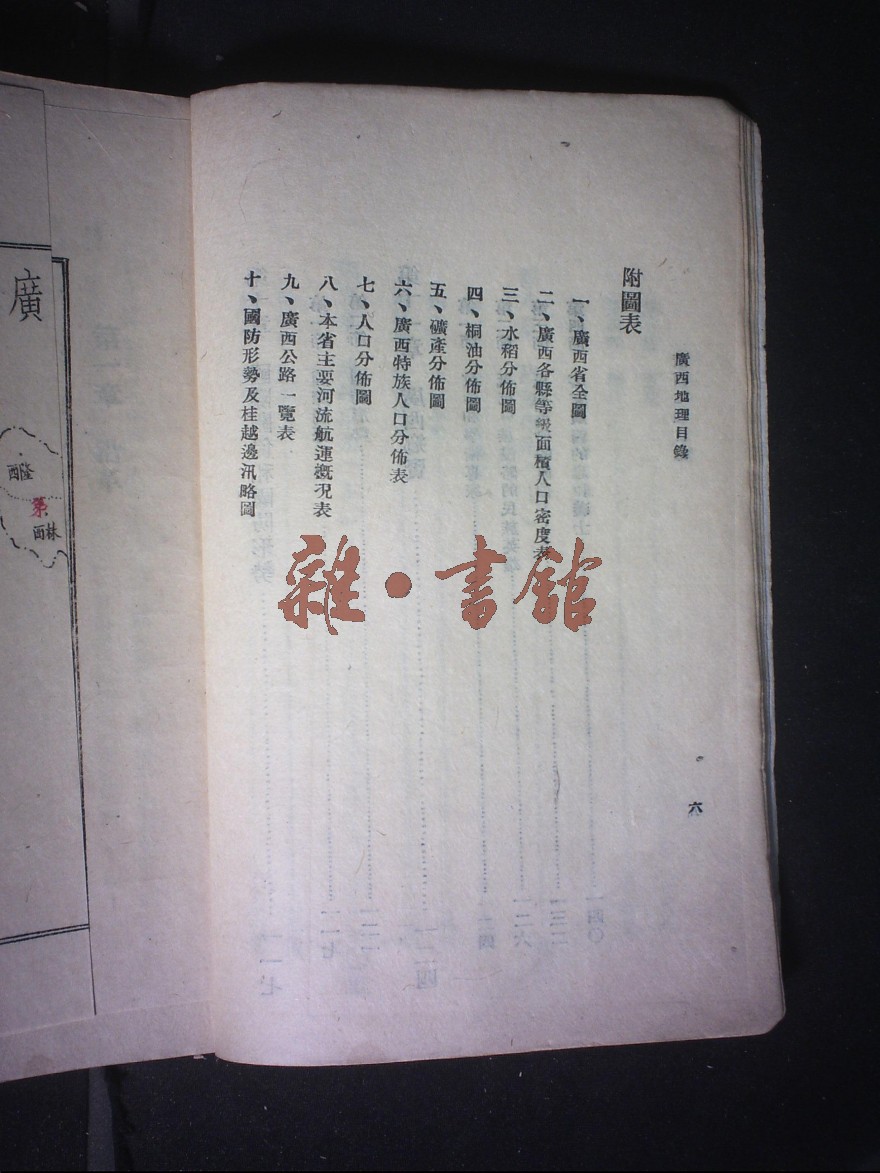 廣西地理目錄
六
附圖表
一、廣西省全圖
二、廣西各縣等級面積人口密度表
三、水稻分佈圖
四、桐油分佈圖
五、礦產分佈圖
六、廣西特族人口分佈表
七、人口分佈圖
八、本省主要河流航運概況表
九、廣西公路一覽表
十、國防形勢及桂越邊汛略圖
雜·書館
廣
西隆
西林